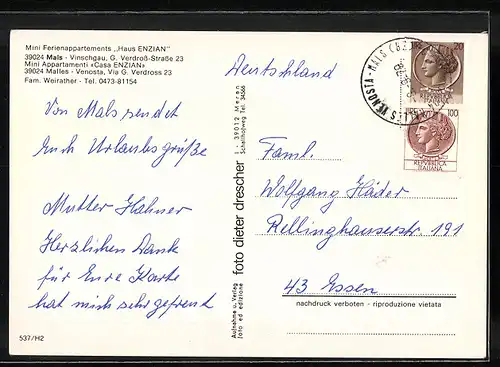 Mini Ferienappartements „Haus ENZIAN"
39024 Mals - Vinschgau, G. Verdroß-Straße 23
Mini Appartamenti «Casa ENZIAN»
39024 Malles - Venosta, Via G. Verdross 23
Fam. Weirather - Tel. 0473-81154
Von Mals sendet
Euch Urlaubsgrüße
Mutter Hahner
Herzlichen Dank
für Eure Karte
hat mich sehr gefreut
537/H2
foto dieter drescher
I - 39012 Meran
Schallhofweg Tel. 34566
Aufnahme u. Verlag
foto ed edizione
Deutschland
Faml.
Wolfgang Häder
Rellinghauserstr. 191
43 Essen
nachdruck verboten - riproduzione vietata
MALLES VENOSTA - MALS (BZ)
20
ITALIANA
100
REPVBBLICA
ITALIANA